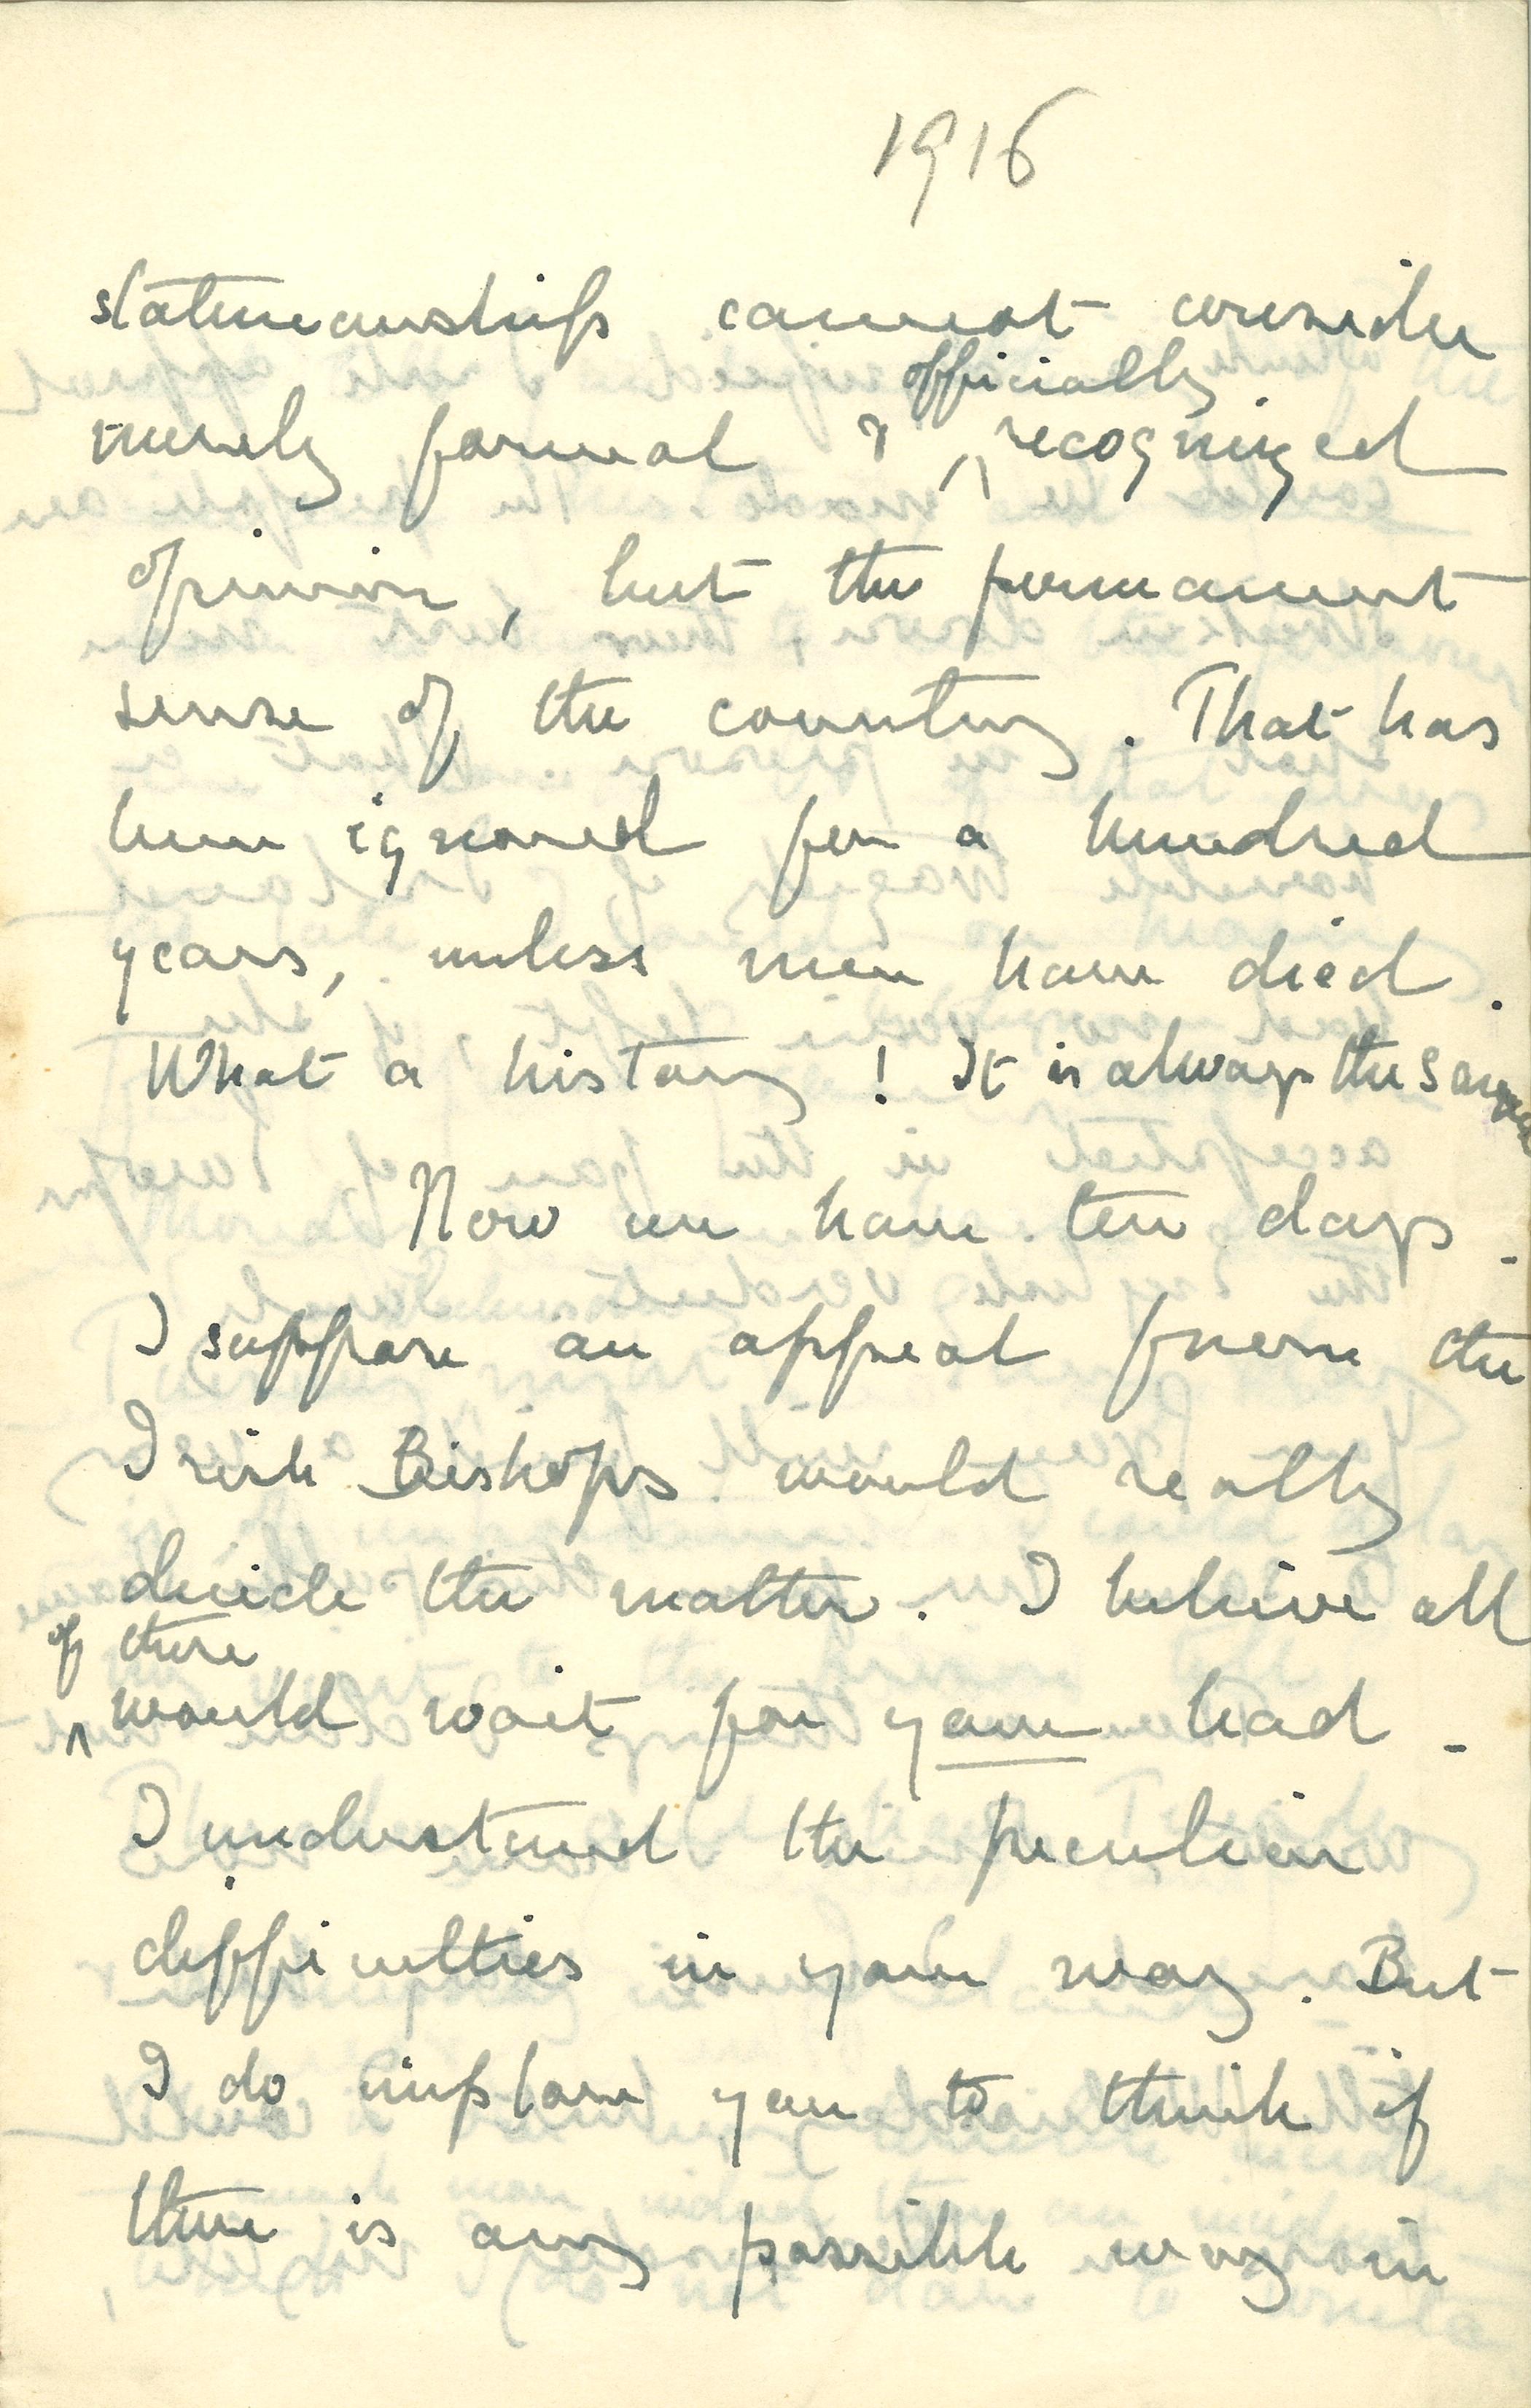 1916
statesmanship cannot consider
officially
merely formal & ^ recognized
opinion, but the permanent
sense of the country. That has
been ignored for a hundred
years, unless men have died.
What a history! It is always the same
Now we have ten days.
I suppose an appeal from the
Irish Bishops would really
decide the matter. I believe all
of these
^ would wait for your lead.
I understand the peculiar
difficulties in your way. But
I do implore you to think if
there is any possible way in